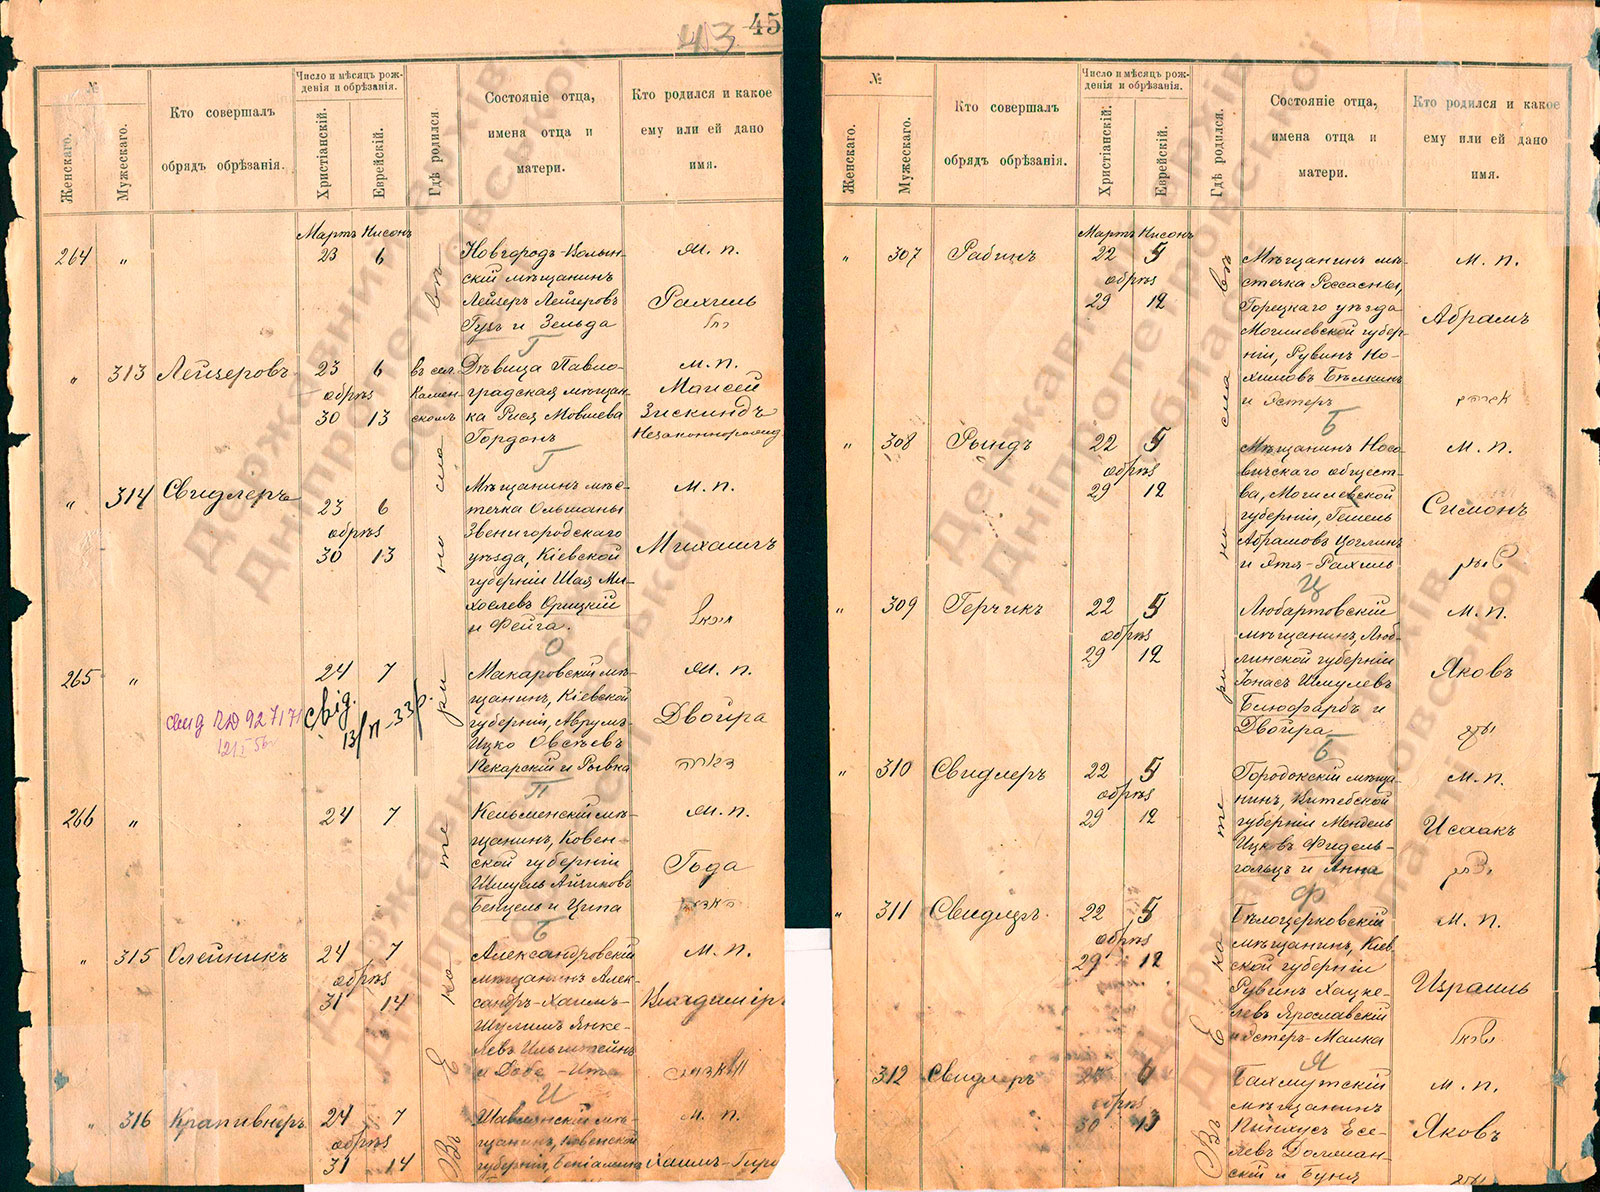 43
45
№
Женскаго.
Мужескаго.
Кто совершалъ
обрядъ обрѣзанія.
Число и мѣсяцъ рож-
денія и обрѣзанія.
Христіанскій.
Еврейскій.
Гдѣ родился
Состояніе отца,
имена отца и
матери.
Кто родился и какое
ему или ей дано
имя.
Мартъ Нисонъ
264 " 23 6
Новгородъ-Волын-
скій мѣщанинъ
Лейзеръ Лейзеровъ
Гузъ и Зельда
Г
м. п.
Рахиль
רחל
" 313 Лейзеровъ 23 6
обрѣз
30 13
въ сел.
Камен-
скомъ
Дѣвица Павло-
градская мѣщан-
ка Рися Мовшева
Гордонъ
Г
м. п.
Моисей
Зискиндъ
Незаконнорожд
" 314 Свидлеръ 23 6
обрѣз
30 13
Мѣщанинъ мѣс-
течка Ольшаны
Звенигородскаго
уѣзда, Кіевской
губерніи Шая Ми-
хелевъ Орицкій
и Фейга.
О
м. п.
Михаилъ
265 " 24 7
свід.
Макаровскій мѣ-
щанинъ, Кіевской
губерніи, Аврумъ-
Ицко Овсѣевъ
Пекарскій и Рывка
П
м. п.
Двойра
266 " 24 7
Кельменскій мѣ-
щанинъ, Ковен-
ской губерніи
Шмуель Айзиковъ
Бенцель и Ципа
Б
м. п.
Года
" 315 Олейникъ 24 7
обрѣз
31 14
Александровскій
мѣщанинъ Алек-
сандръ-Хаимъ-
Шулимъ Янке-
левъ Ильштейнъ
и Добе-Ита
И
м. п.
Владиміръ
" 316 Крапивнеръ 24 7
обрѣз
31 14
Шавлянскій мѣ-
щанинъ, Ковенской
губерніи,
м. п.
Хаимъ-
Въ Екатеринославѣ
№
Женскаго.
Мужескаго.
Кто совершалъ
обрядъ обрѣзанія.
Число и мѣсяцъ рож-
денія и обрѣзанія.
Христіанскій.
Еврейскій.
Гдѣ родился.
Состояніе отца,
имена отца и
матери.
Кто родился и какое
ему или ей дано
имя.
Мартъ Нисонъ
" 307 Рабинъ 22 5
обрѣз
29 12
Мѣщанинъ мѣ-
стечка Россасны,
Горецкаго уѣзда
Могилевской губер-
ніи, Рувинъ Но-
химовъ Бѣлкинъ
и Эстеръ
Б
м. п.
Абрамъ
" 308 Рындъ 22 5
обрѣз
29 12
Мѣщанинъ Носо-
вичскаго общест-
ва, Могилевской
губерніи, Гешель
Абрамовъ Цоглинъ
и Этя-Рахиль
Ц
м. п.
Симонъ
" 309 Герчикъ 22 5
обрѣз
29 12
Любартовскій
мѣщанинъ, Люб-
линской губерніи
Іонасъ Шмулевъ
Блюфарбъ и
Двойра
Б
м. п.
Яковъ
" 310 Свидлеръ 22 5
обрѣз
29 12
Городокскій мѣща-
нинъ, Витебской
губерніи Мендель
Ицковъ Фидель-
гольцъ и Анна
Ф
м. п.
Исаакъ
" 311 Свидлеръ 22 5
обрѣз
29 12
Бѣлоцерковскій
мѣщанинъ, Кіев-
ской губерніи
Рувинъ Хацке-
левъ Ярославскій
и Эстеръ-Малка
Я
м. п.
Израиль
" 312 Свидлеръ 6
обрѣз
30 13
Бахмутскій
мѣщанинъ
Пинхусъ Есе-
левъ Долман-
скій и Буня
м. п.
Яковъ
Въ Екатеринославѣ
Державний архів
Дніпропетровської
області